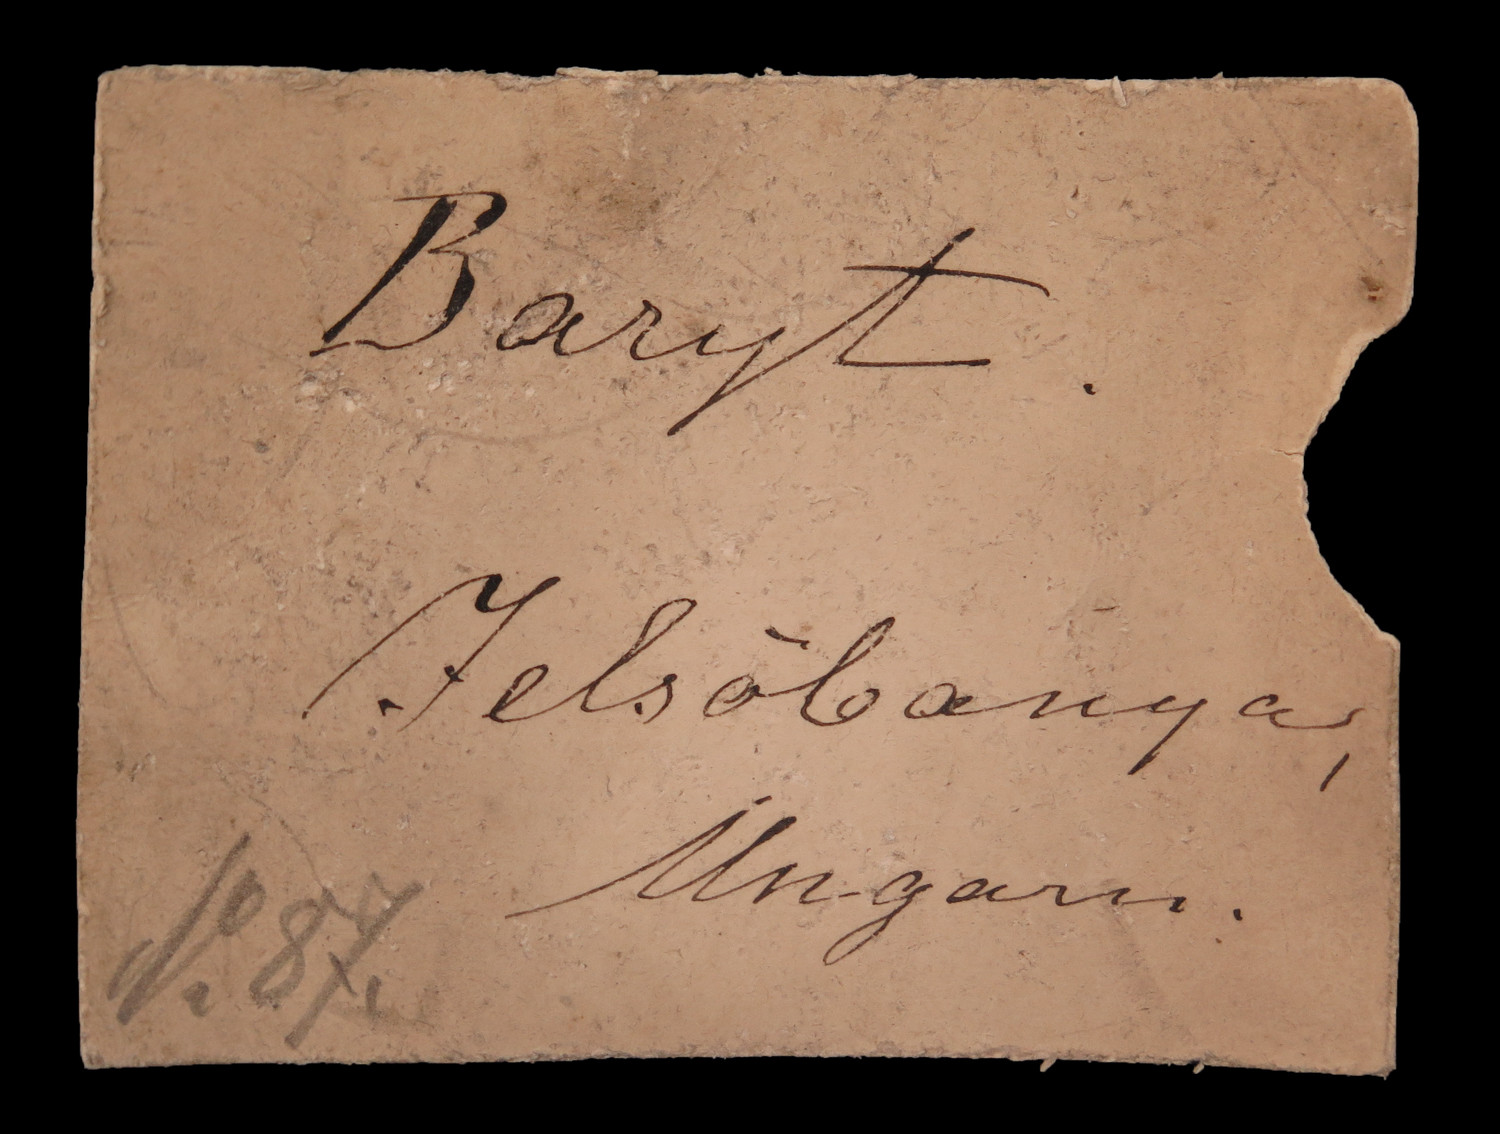 Baryt.
Felsőbanya,
Ungarn.
No. 87.